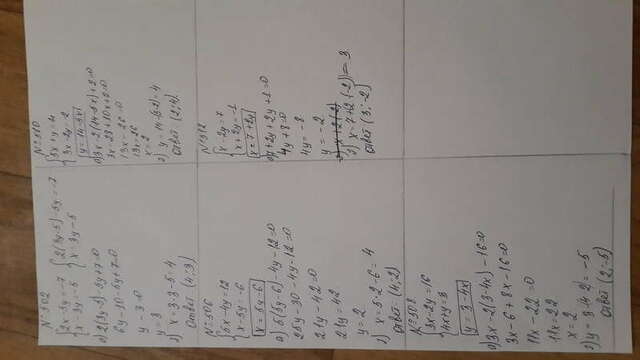 № 302
{2x-5y=-7 {2(3y-5)-5y=-7
{x-3y=-5 {x=3y-5
a) 2(3y-5)-5y+7=0
6y-10-5y+7=0
y-3=0
y=3
2) x=3·3-5=4
Ответ (4;3)
№ 306
{5x-4y=12
{x-5y=-6
x=5y-6
a) 5(5y-6)-4y-12=0
25y-30-4y-12=0
21y-42=0
21y=42
y=2
2) x=5·2-6=4
Ответ: (4;2)
№ 308
{3x-2y=16
{4x+y=3
y=3-4x
a) 3x-2(3-4x)-16=0
3x-6+8x-16=0
11x-22=0
11x=22
x=2
2) y=3-(4·2)=-5
Ответ (2;-5)
№ 310
{5x+y=14
{3x-2y=-2
y=14-5x
a) 3x-2(14-5x)+2=0
3x-28+10x+2=0
13x-26=0
13x=26
x=2
2) y=14-(5·2)=4
Ответ (2;4)
№ 312
{x-2y=7
{x+2y=-1
x=7+2y
a) 7+2y+2y+1=0
4y+8=0
4y=-8
y=-2
2) x=7+(2·(-2))=3
Ответ (3;-2)